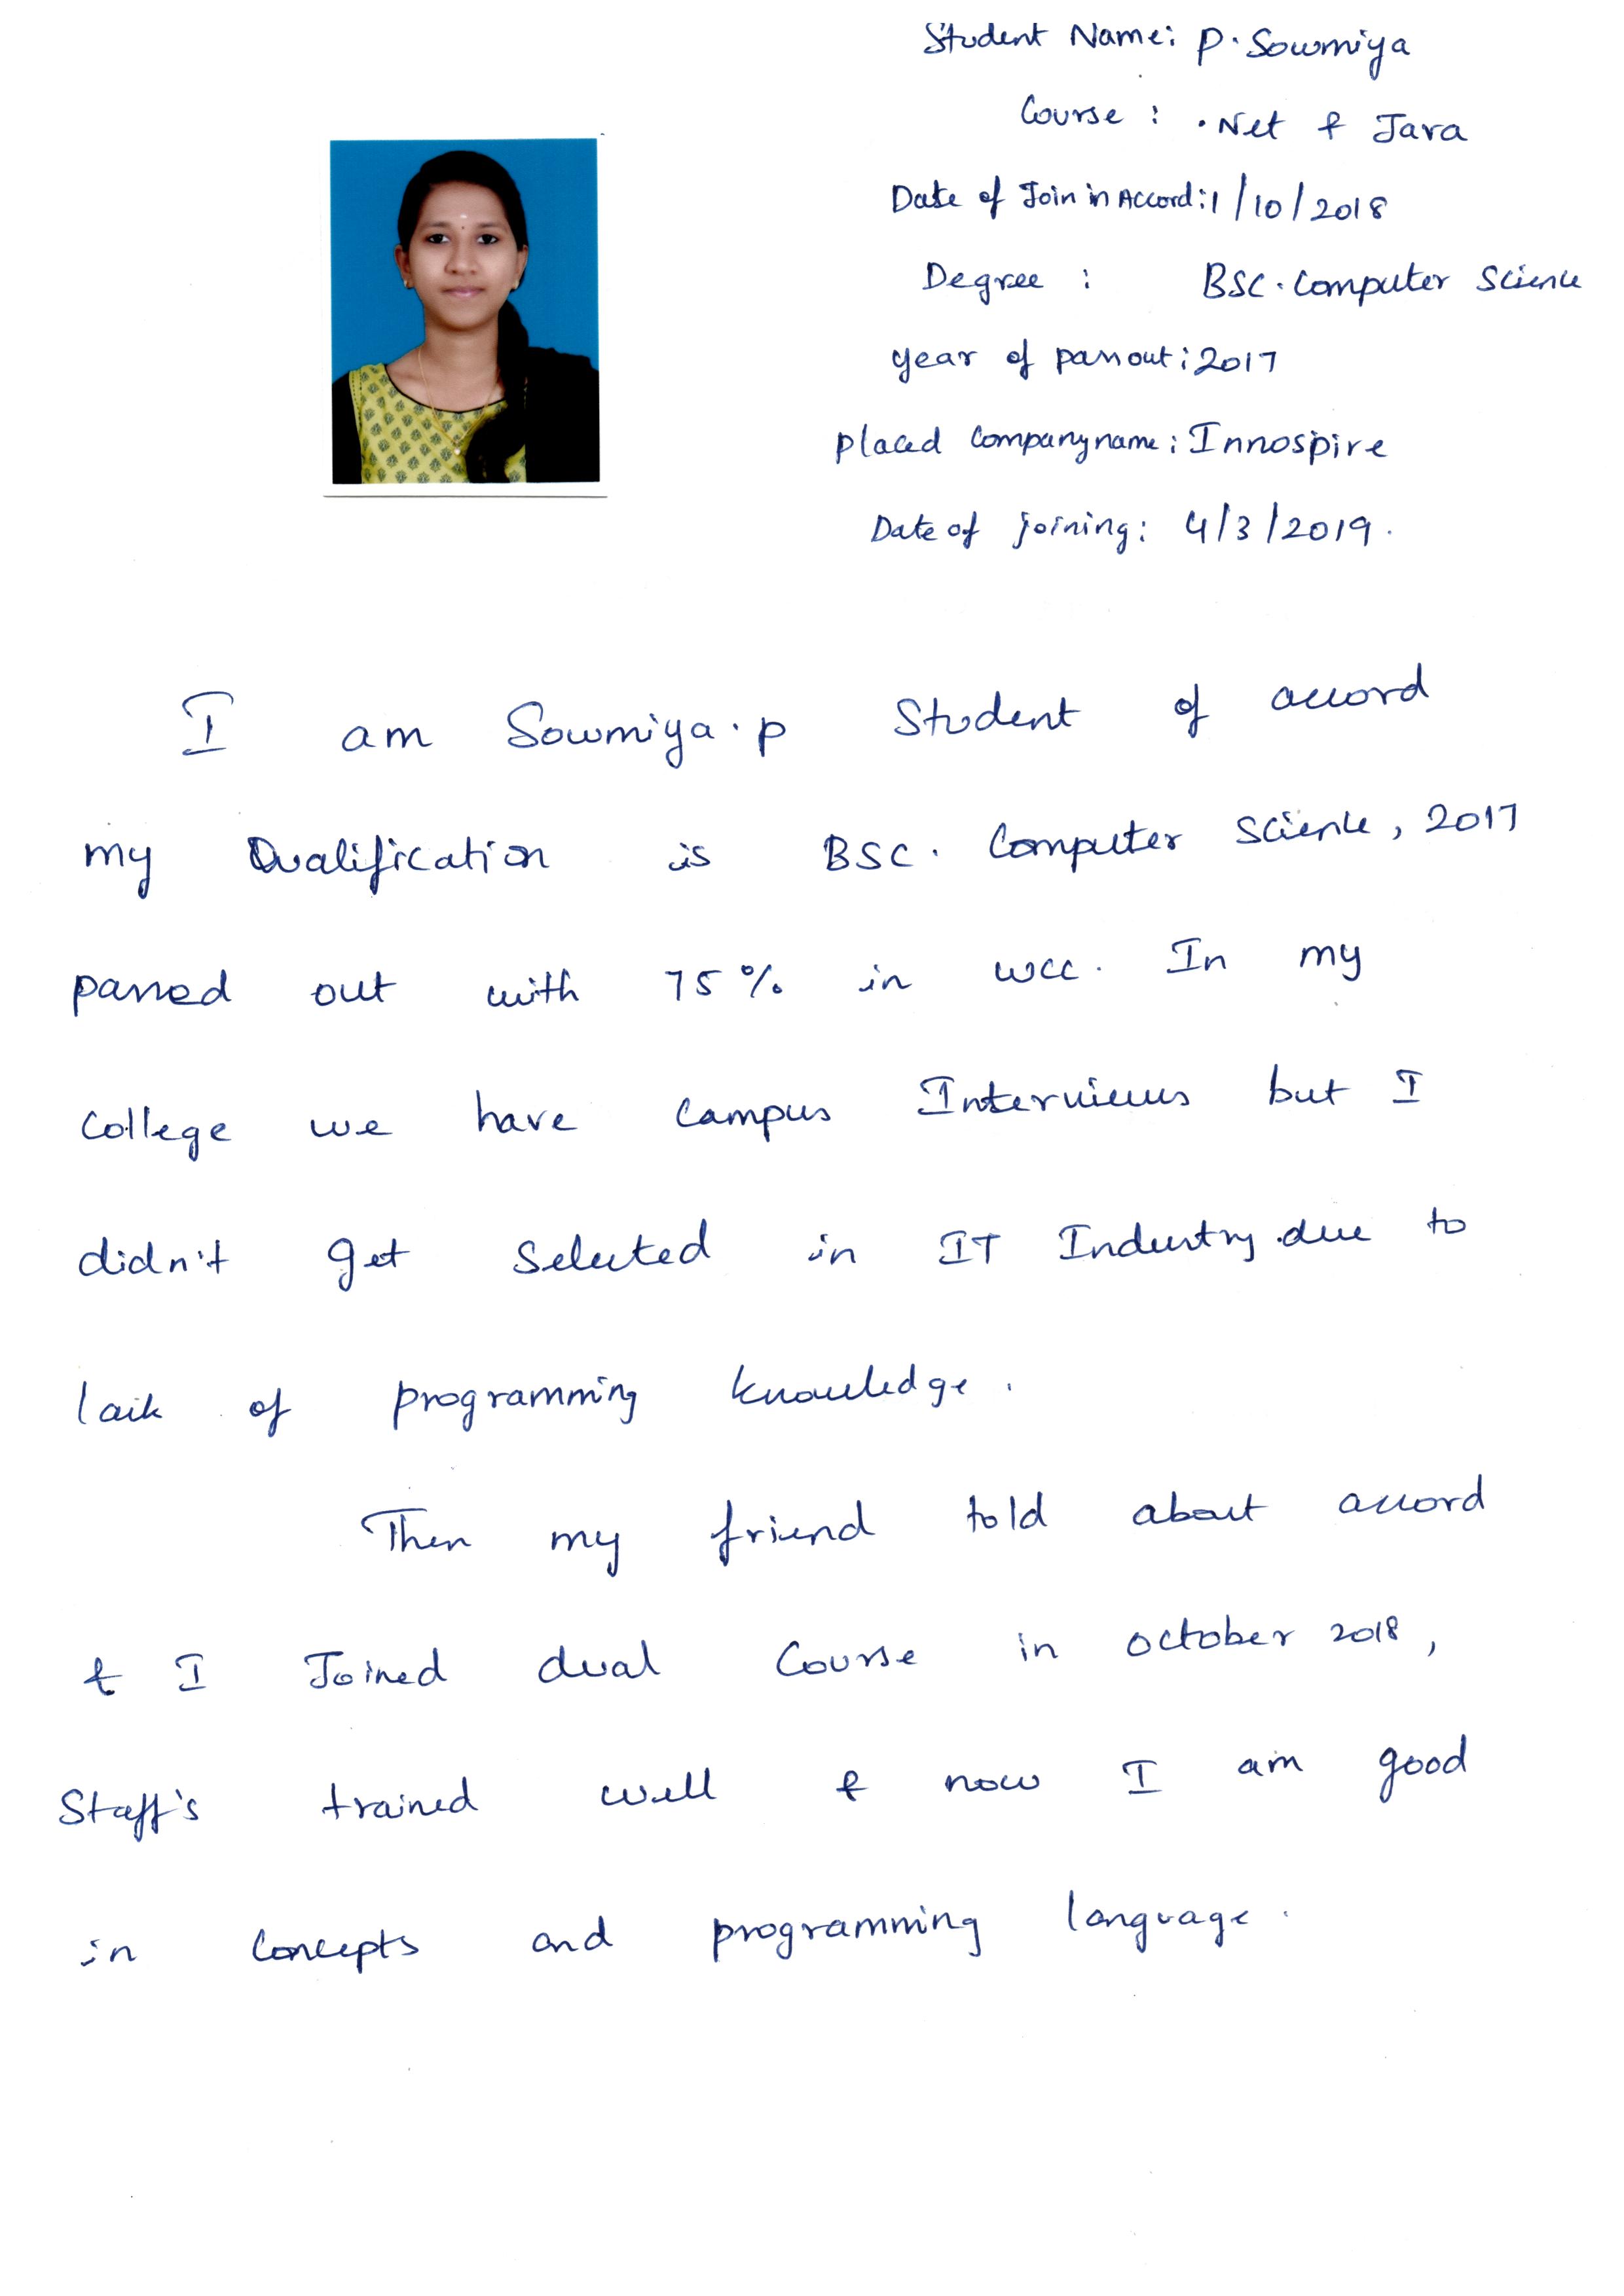 Student Name: P. Sowmiya
Course : .Net & Java
Date of Join in Accord: 1/10/2018
Degree : BSC. Computer Science
year of passout: 2017
placed Company name: Innospire
Date of joining: 4/3/2019.
I am Sowmiya.p Student of accord
my Qualification is BSC. Computer Science, 2017
passed out with 75% in wcc. In my
College we have campus Interviews but I
didn't get Selected in IT Industry due to
lack of programming knowledge.
Then my friend told about accord
& I Joined dual Course in october 2018,
Staff's trained well & now I am good
in Concepts and programming language.